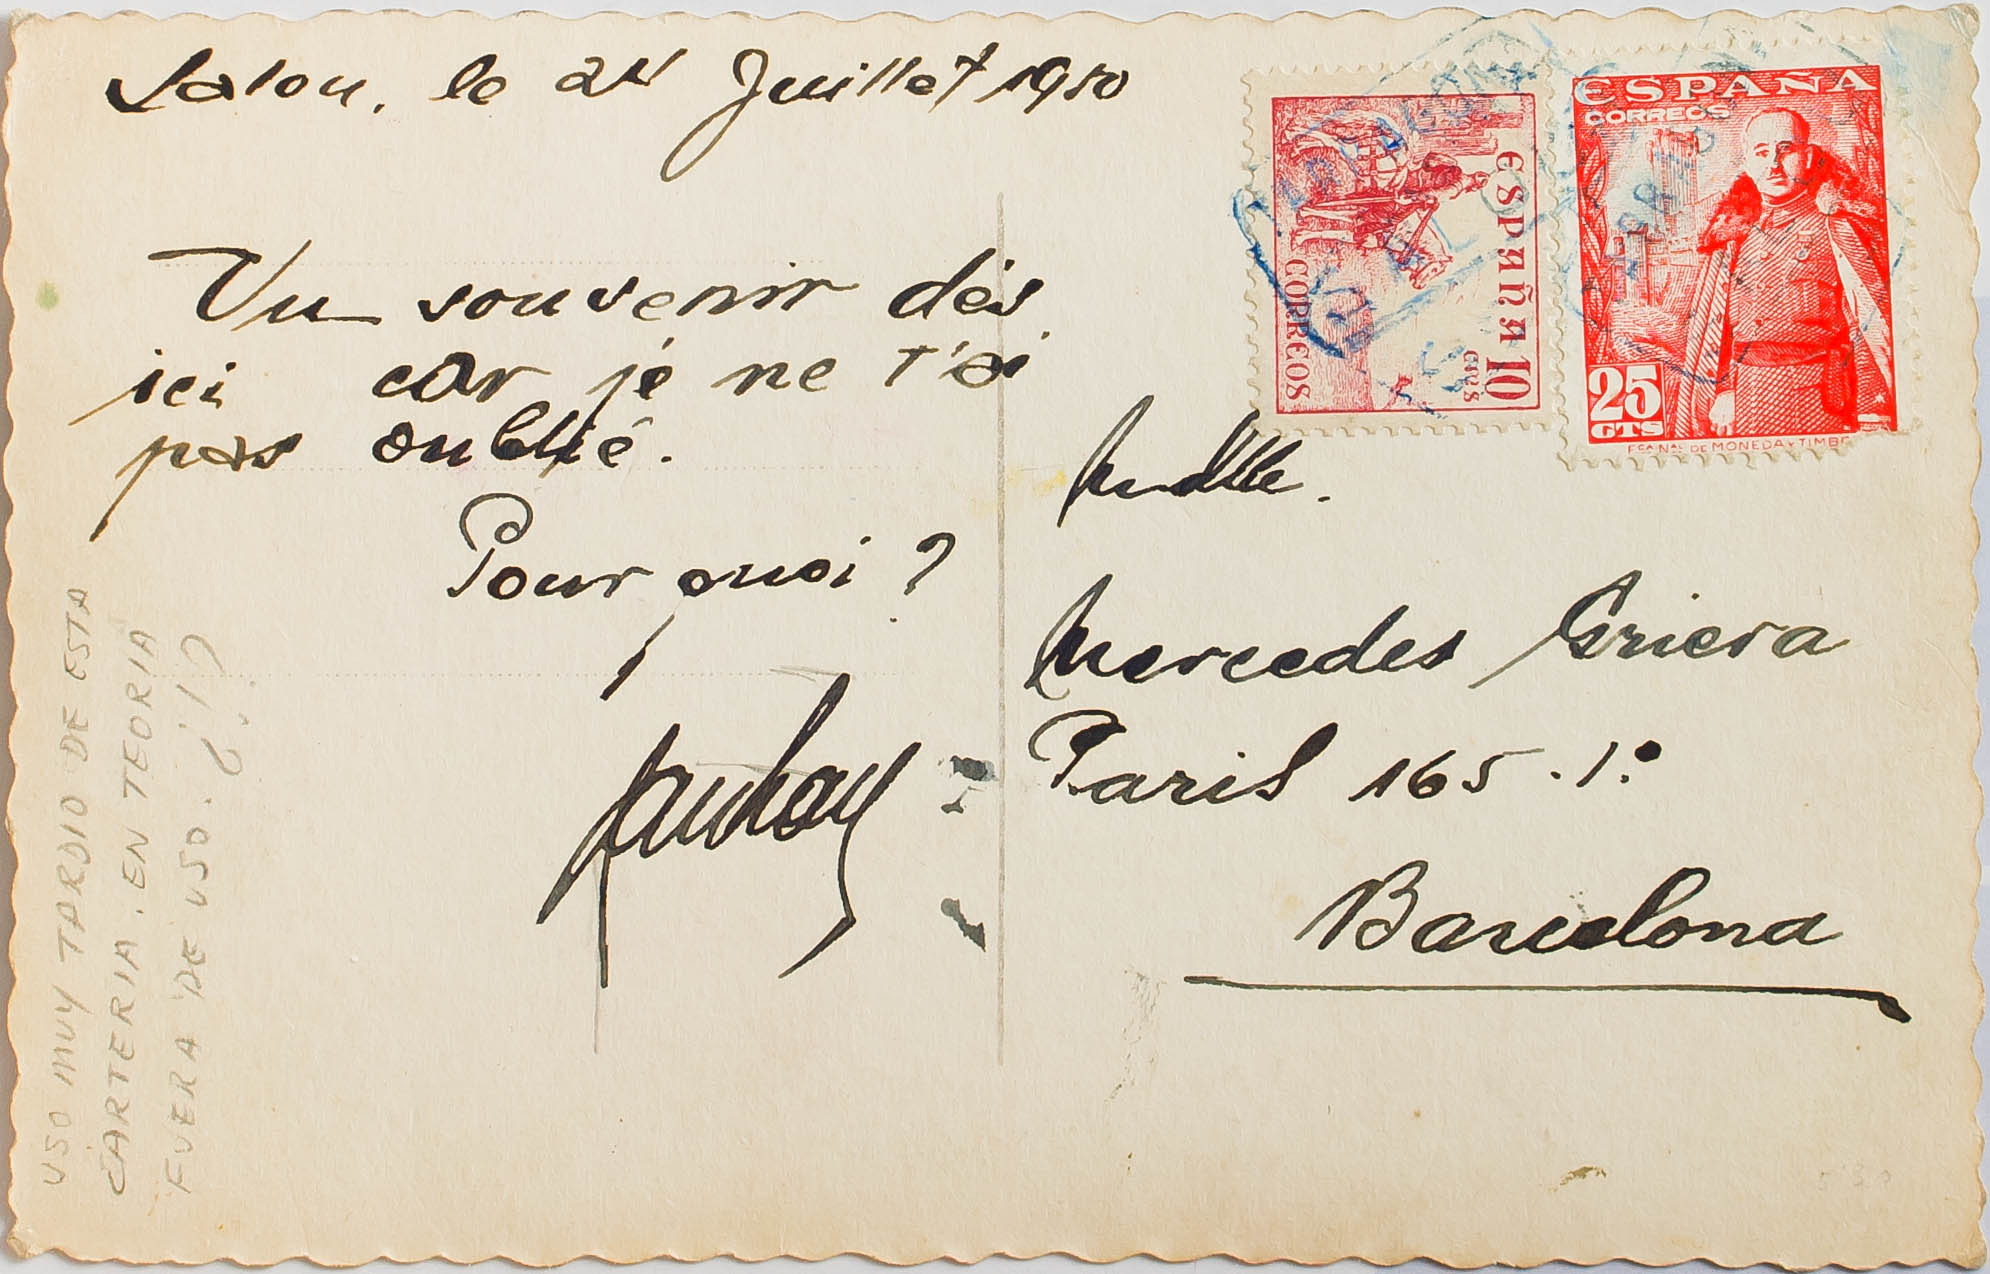 Salou, le 24 Juillet 1950
Un souvenir dés
ici car je ne t'ai
pas oublié.
Pourquoi?
ESPAÑA
CORREOS
10
CTS
ESPAÑA
CORREOS
25
CTS
FCA NAL DE MONEDA Y TIMBRE
Mlle.
Mercedes Griera
Paris 165 · 1º
Barcelona
USO MUY TARDIO DE ESTA
CARTERIA. EN TEORIA
FUERA DE USO. ¿!?